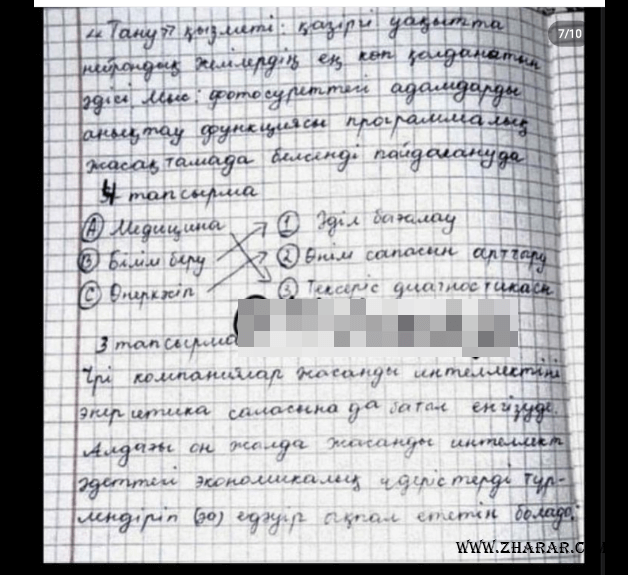 7/10
"Тану" қызметі: қазіргі уақытта
нейрондық желілердің ең көп қолданатын
әдісі Мыс: фотосуреттегі адамдарды
анықтау функциясы программалық
жасақтамада белсенді пайдалануда
4 тапсырма
А Медицина 1 Әділ бағалау
В Білім беру 2 Өнім сапасын арттыру
С Өнеркәсіп 3 Тексеріс диагностикасы
3 тапсырма
Ірі компаниялар жасанды интеллектіні
энергетика саласына да батыл енгізуде.
Алдағы он жылда жасанды интеллект
әдеттегі экономикалық үдерістерді түр-
лендіріп едәуір ықпал ететін болады.
WWW.ZHARAR.C